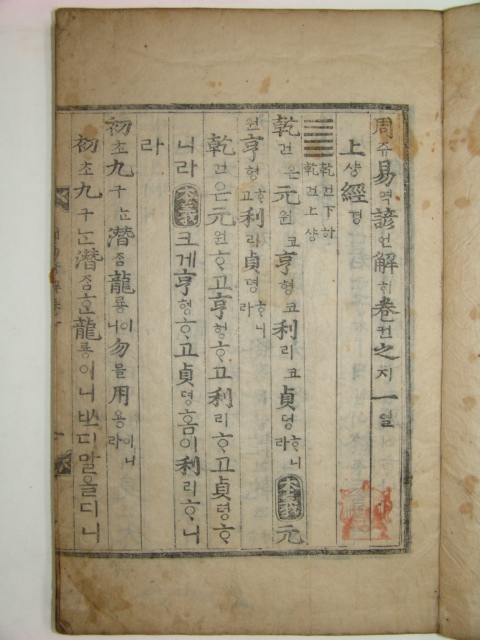 周쥬易역諺언解ᄒᆡ卷권之지一일
上샹經경
乾건下하
乾건上샹
乾건은元원코亨형코利리코貞뎡ᄒᆞ니라本義元
원亨형ᄒᆞ고利리貞뎡ᄒᆞ니라
乾건은元원ᄒᆞ고亨형ᄒᆞ고利리ᄒᆞ고貞뎡ᄒᆞ
니라本義크게亨형ᄒᆞ고貞뎡홈이利리ᄒᆞ니
라
初초九구ᄂᆞᆫ潛ᄌᆞᆷ龍룡이니勿믈用용이니라
初초九구ᄂᆞᆫ潛ᄌᆞᆷᄒᆞᆫ龍룡이니ᄡᅳ디말올디니